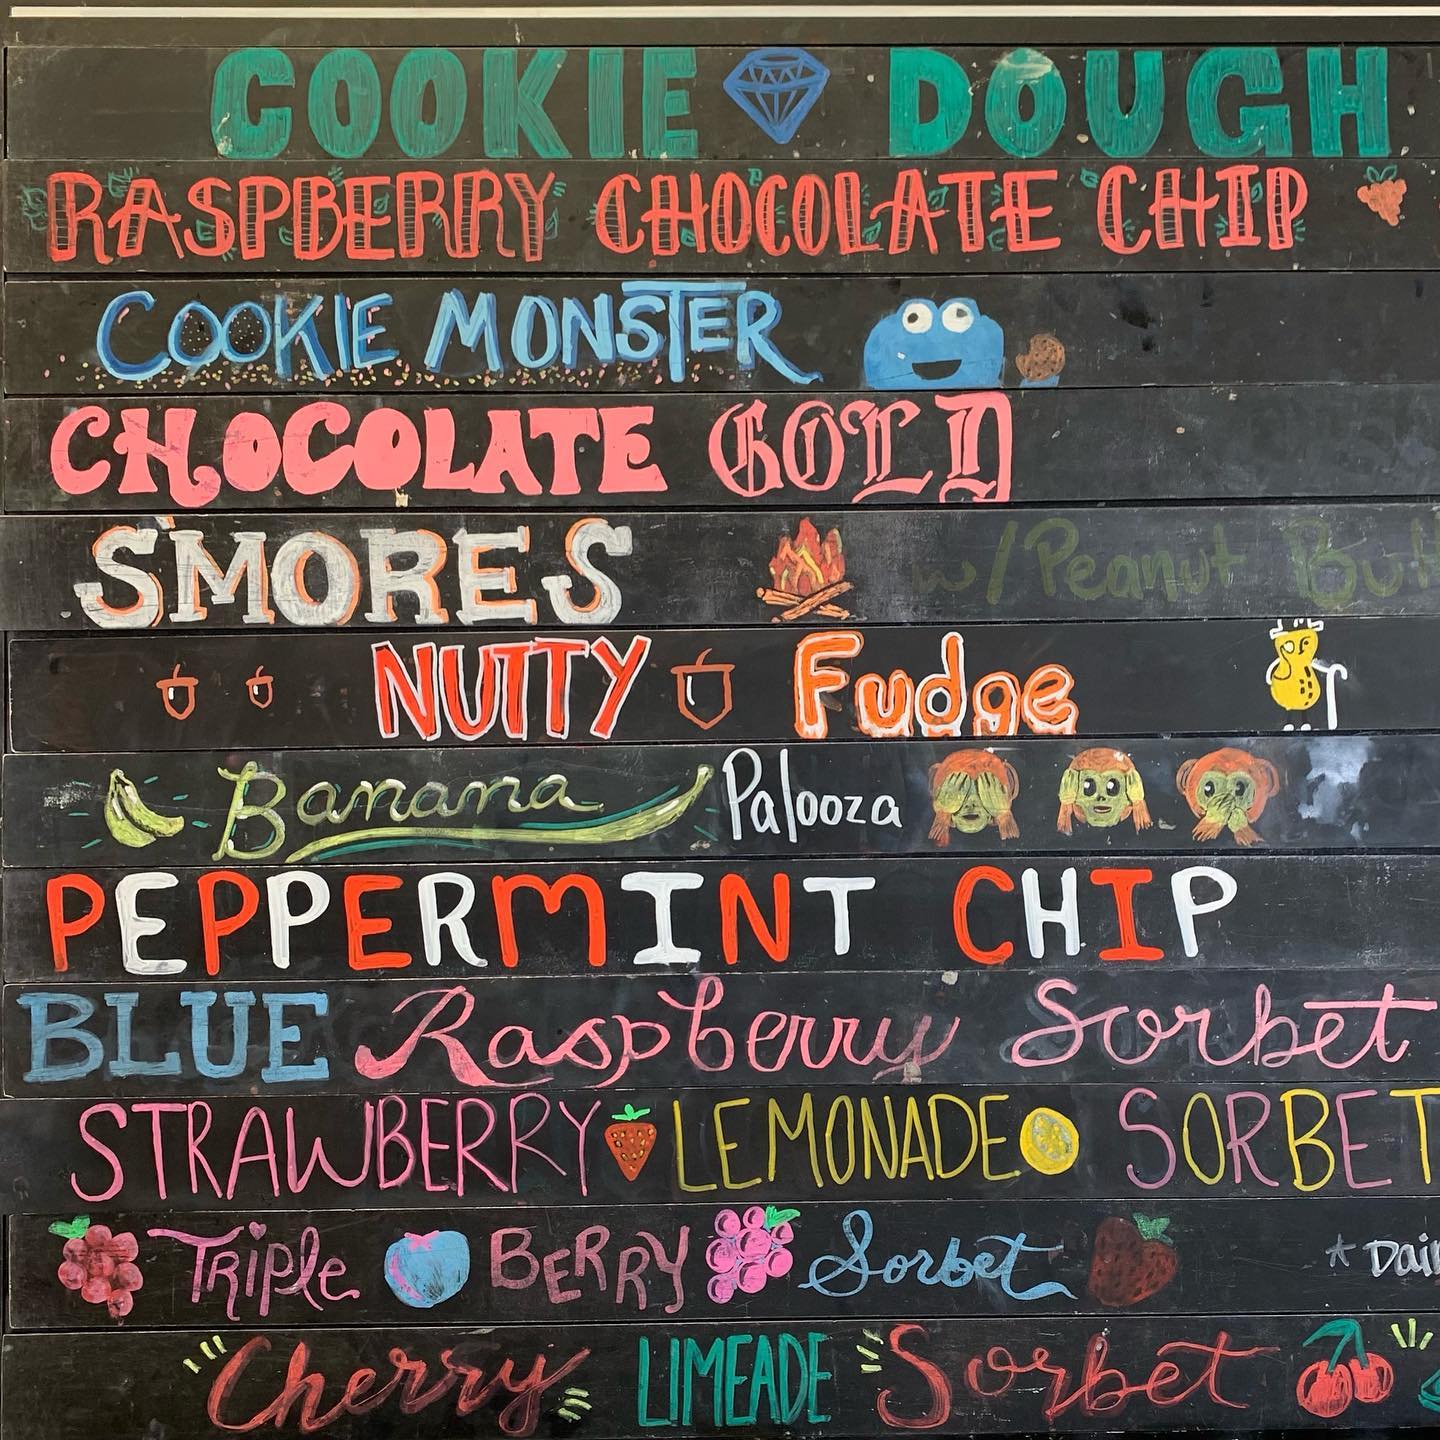 COOKIE DOUGH
RASPBERRY CHOCOLATE CHIP
COOKIE MONSTER
CHOCOLATE GOLD
S'MORES w/Peanut
NUTTY Fudge
Banana Palooza
PEPPERMINT CHIP
BLUE Raspberry Sorbet
STRAWBERRY LEMONADE SORBET
TRIPle BERRY Sorbet
Cherry LIMEADE Sorbet